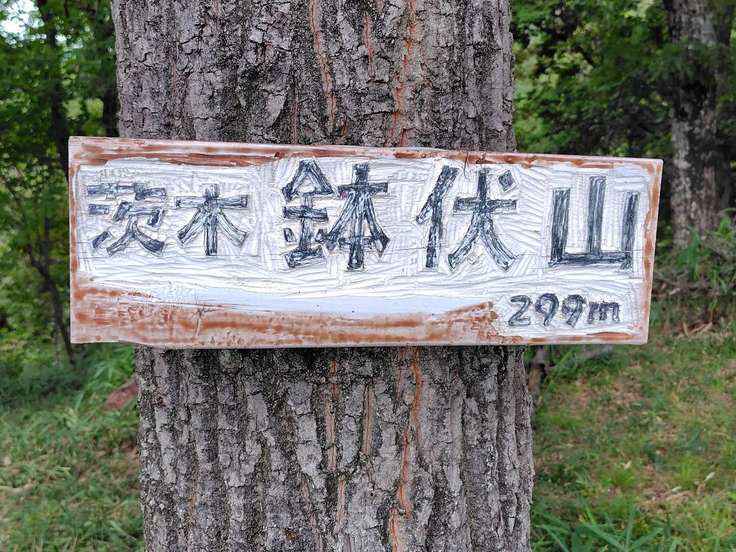 茨木鉢伏山
299m